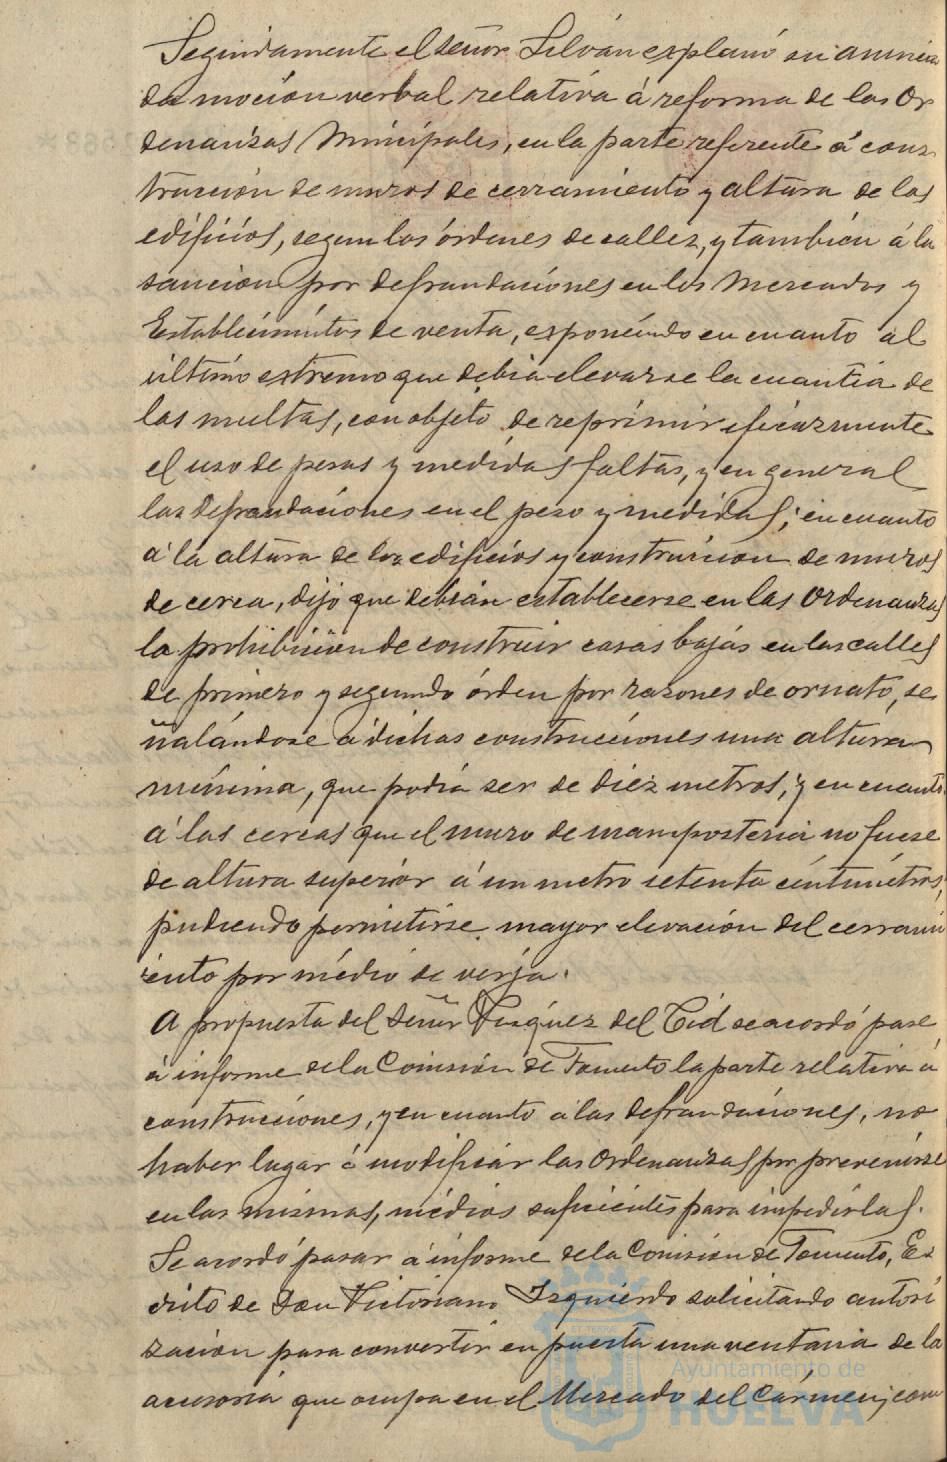 Seguidamente el señor Silván explanó su anuncia
da moción verbal relativa á reforma de las Or
denanzas Municipales, en la parte referente á cons
trucción de muros de cerramiento y altura de los
edificios, segun los órdenes de calles, y también á la
sanción por defraudaciones en los Mercados y
Establecimientos de venta, exponiendo en cuanto al
último estremo que debia elevarse la cuantia de
las multas, con objeto de reprimir eficazmente
el uso de pesas y medidas faltas, y en general
las defraudaciones en el peso y medidas; en cuanto
á la altura de los edificios y construcion de muros
de cerca, dijo que debian establecerse en las Ordenanzas
la prohibición de construir casas bajas en las calles
de primero y segundo órden por razones de ornato, se
ñalándose á dichas construcciones una altura
mínima, que podia ser de diez metros, y en cuanto
á las cercas que el muro de mamposteria no fuese
de altura superior á un metro setenta centimetros,
pudiendo permitirse mayor elevación del cerrami
ento por médio de verja.
A propuesta del Señor Vazquez del Cid se acordó pase
á informe de la Comisión de Fomento la parte relativa á
construcciones, y en cuanto á las defraudaciones, no
haber lugar á modificar las Ordenanzas por prevenirse
en las mismas, médios suficientes para impedirlas.
Se acordó pasar á informe de la Comisión de Fomento, Es
crito de Don Victoriano Izquierdo solicitando autori
zacion para convertir en puerta una ventana de la
accesoria que ocupa en el Mercado del Cármen; con
Ayuntamiento de
HUELVA